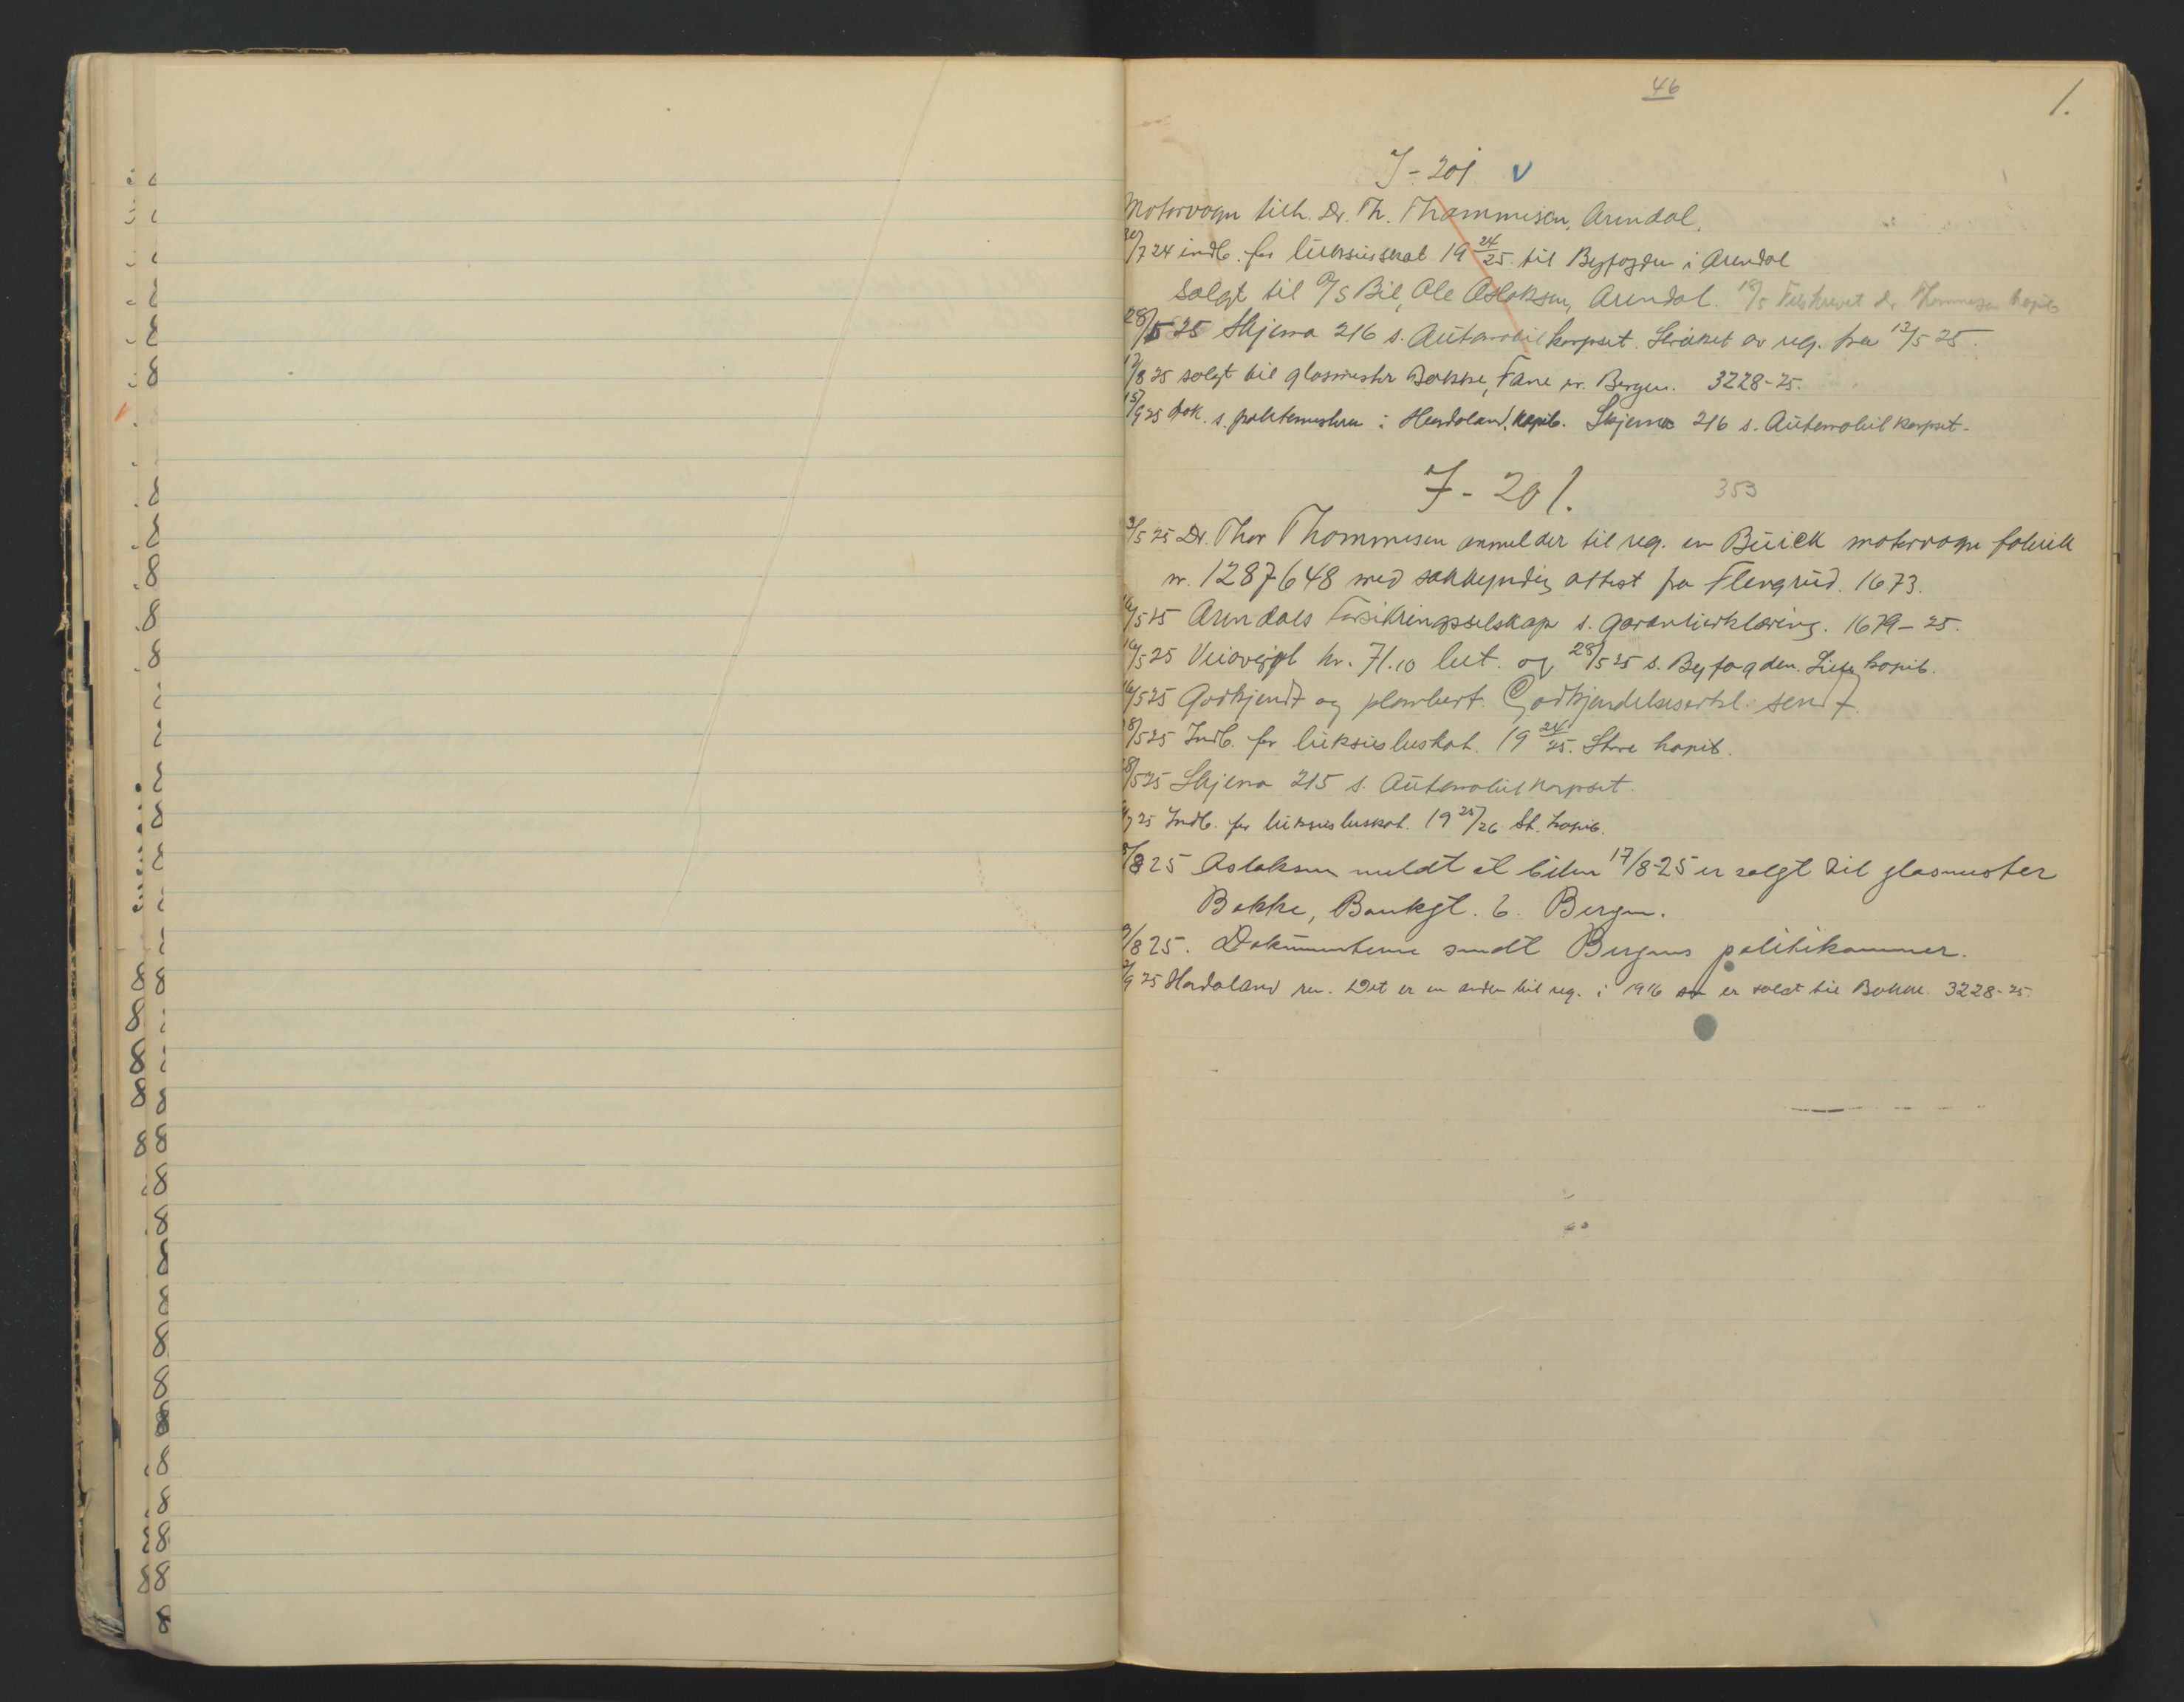 46
1.
I-201 v
Motorvogn tilh. Dr. Th. Thommesen, Arendal.
30/7 24 indb. for luksusskat 19 24/25 til Byfogden i Arendal
Solgt til A/S Bil, Ole Aslaksen, Arendal. 18/5 Tilskrevet dr. Thommesen kopib
28/5 25 Skjema 216 s. Automobilkorpset. Strøket av reg. fra 12/5 25.
17/8 25 solgt til glasmester Bakke, Fane pr. Bergen. 3228-25.
15/9 25 dok. s. politimesteren i Hordaland, kopib. Skjema 216 s. Automobilkorpset.
I-201. 353
/5 25 Dr. Thor Thommesen anmelder til reg. en Buick motorvogn fabrik
nr. 1287648 med sakkyndig attest fra Flengrud. 1673.
16/5 25 Arendals Forsikringsselskap s. garantierklæring. 1679-25.
16/5 25 Veiavgift kr. 71.10 bet. og 28/5 25 s. Byfogden. Liste kopib.
16/5 25 Godkjendt og plombert. Godkjendelseserkl. sendt.
28/5 25 Indb. for luksusbeskat. 19 24/25. Store kopib.
28/5 25 Skjema 215 s. Automobilkorpset.
/7 25 Indb. for luksusbeskat. 19 25/26 St. kopib.
/8 25 Aslaksen meldt at bilen 17/8-25 er solgt til glasmester
Bakke, Bankgt. 6. Bergen.
/8 25. Dokumenterne sendt Bergens politikammer.
/9 25 Hordaland ret. Det er en anden bil reg. i 1916 som er solgt til Bakke. 3228-25.